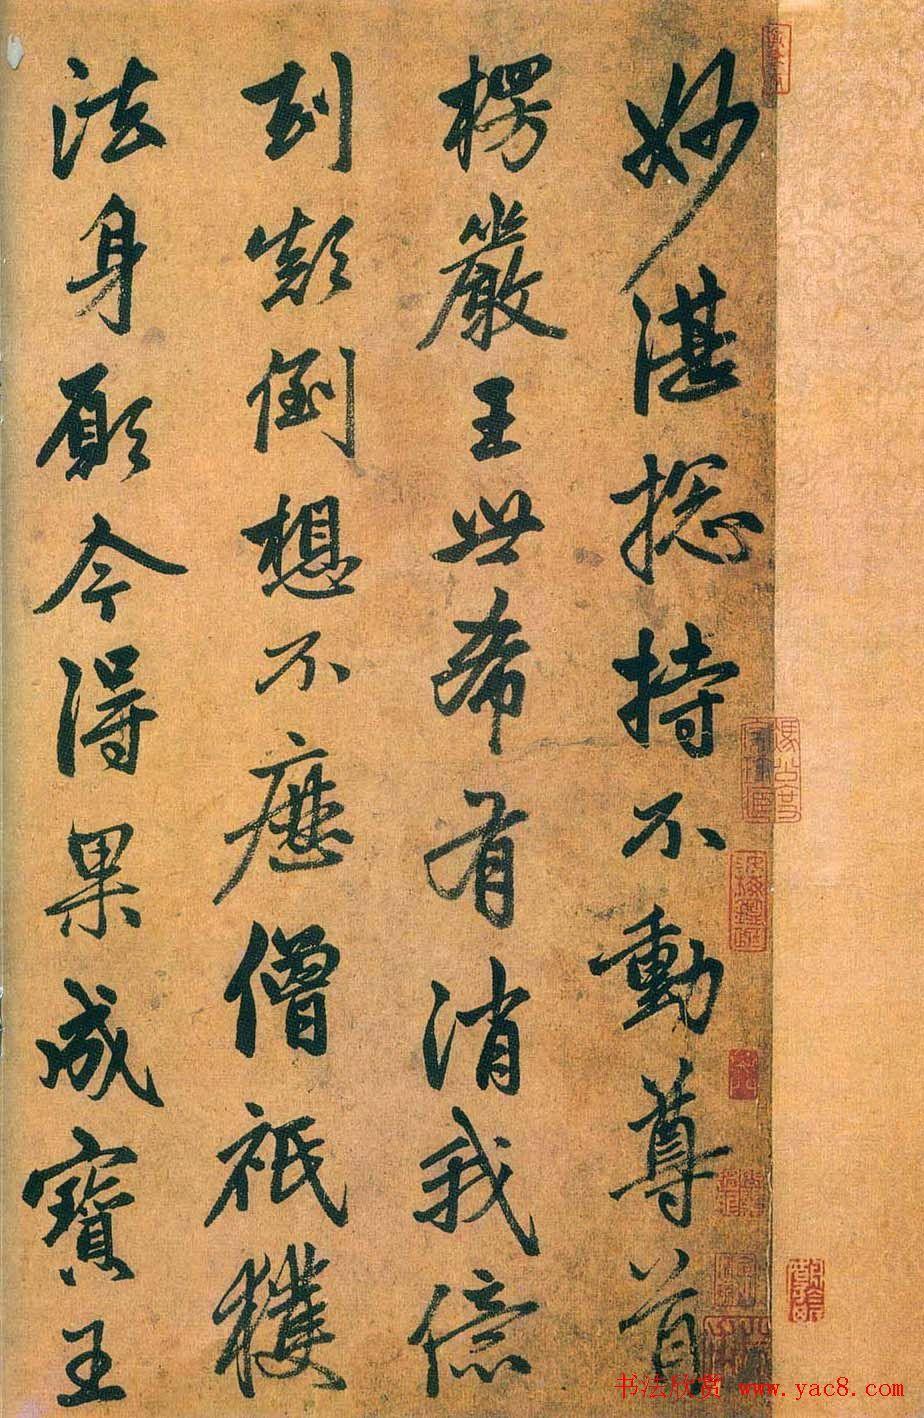 妙湛揔持不動尊首
楞嚴王世希有消我億
刧顛倒想不歷僧祇獲
法身願今得果成寶王
书法欣赏 www.yac8.com